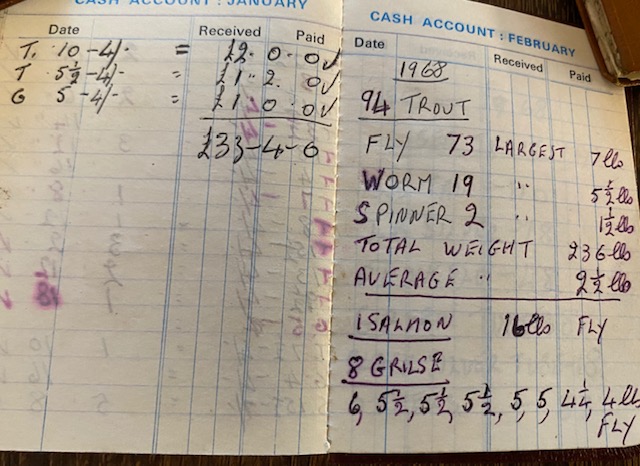 CASH ACCOUNT : JANUARY
Date Received Paid
T. 10 - 4/- = £2. 0. 0 ✓
T 5½ - 4/- = £1. 2. 0 ✓
G 5 - 4/- = £1. 0. 0 ✓
£33 - 4 - 0
CASH ACCOUNT : FEBRUARY
Date Received Paid
1968
94 TROUT
FLY 73 LARGEST 7 lbs
WORM 19 " 5½ lbs
SPINNER 2 " 1½ lbs
TOTAL WEIGHT 236 lbs
AVERAGE " 2½ lbs
1 SALMON 16 lbs FLY
8 GRILSE
6, 5½, 5½, 5½, 5, 5, 4¼, 4 lb
FLY